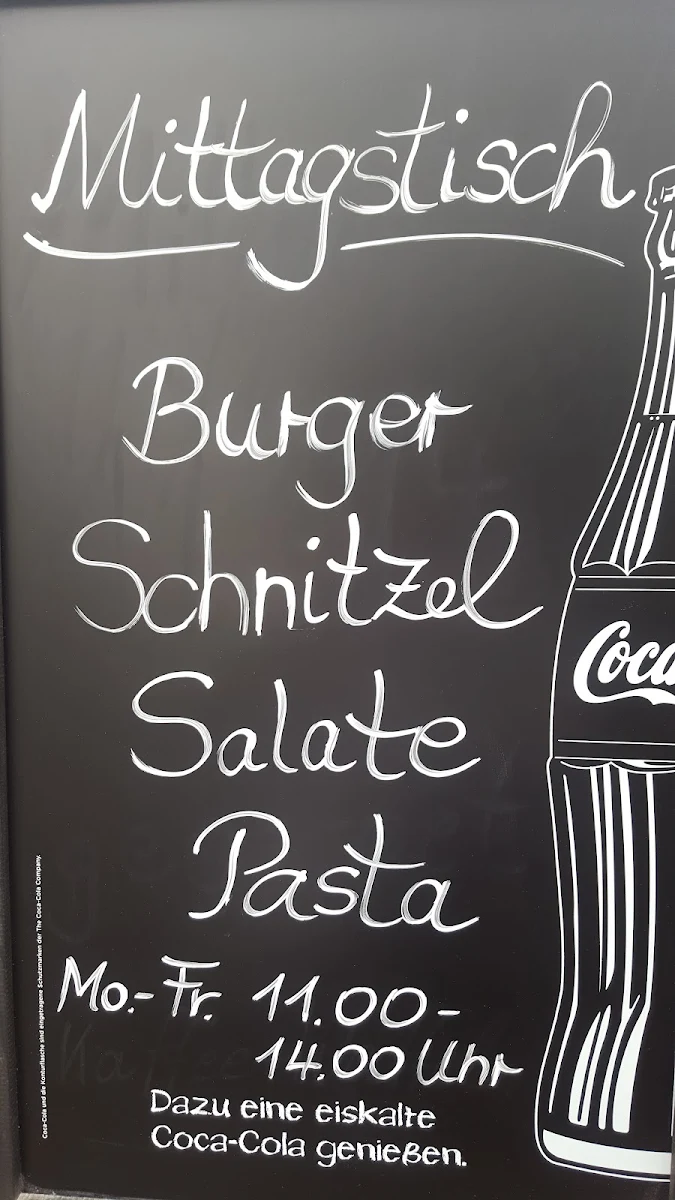 Mittagstisch
Burger
Schnitzel
Salate
Pasta
Mo.- Fr. 11.00 -
14.00 Uhr
Dazu eine eiskalte
Coca-Cola genießen.
Coca
Coca-Cola und die Konturflasche sind eingetragene Schutzmarken der The Coca-Cola Company.